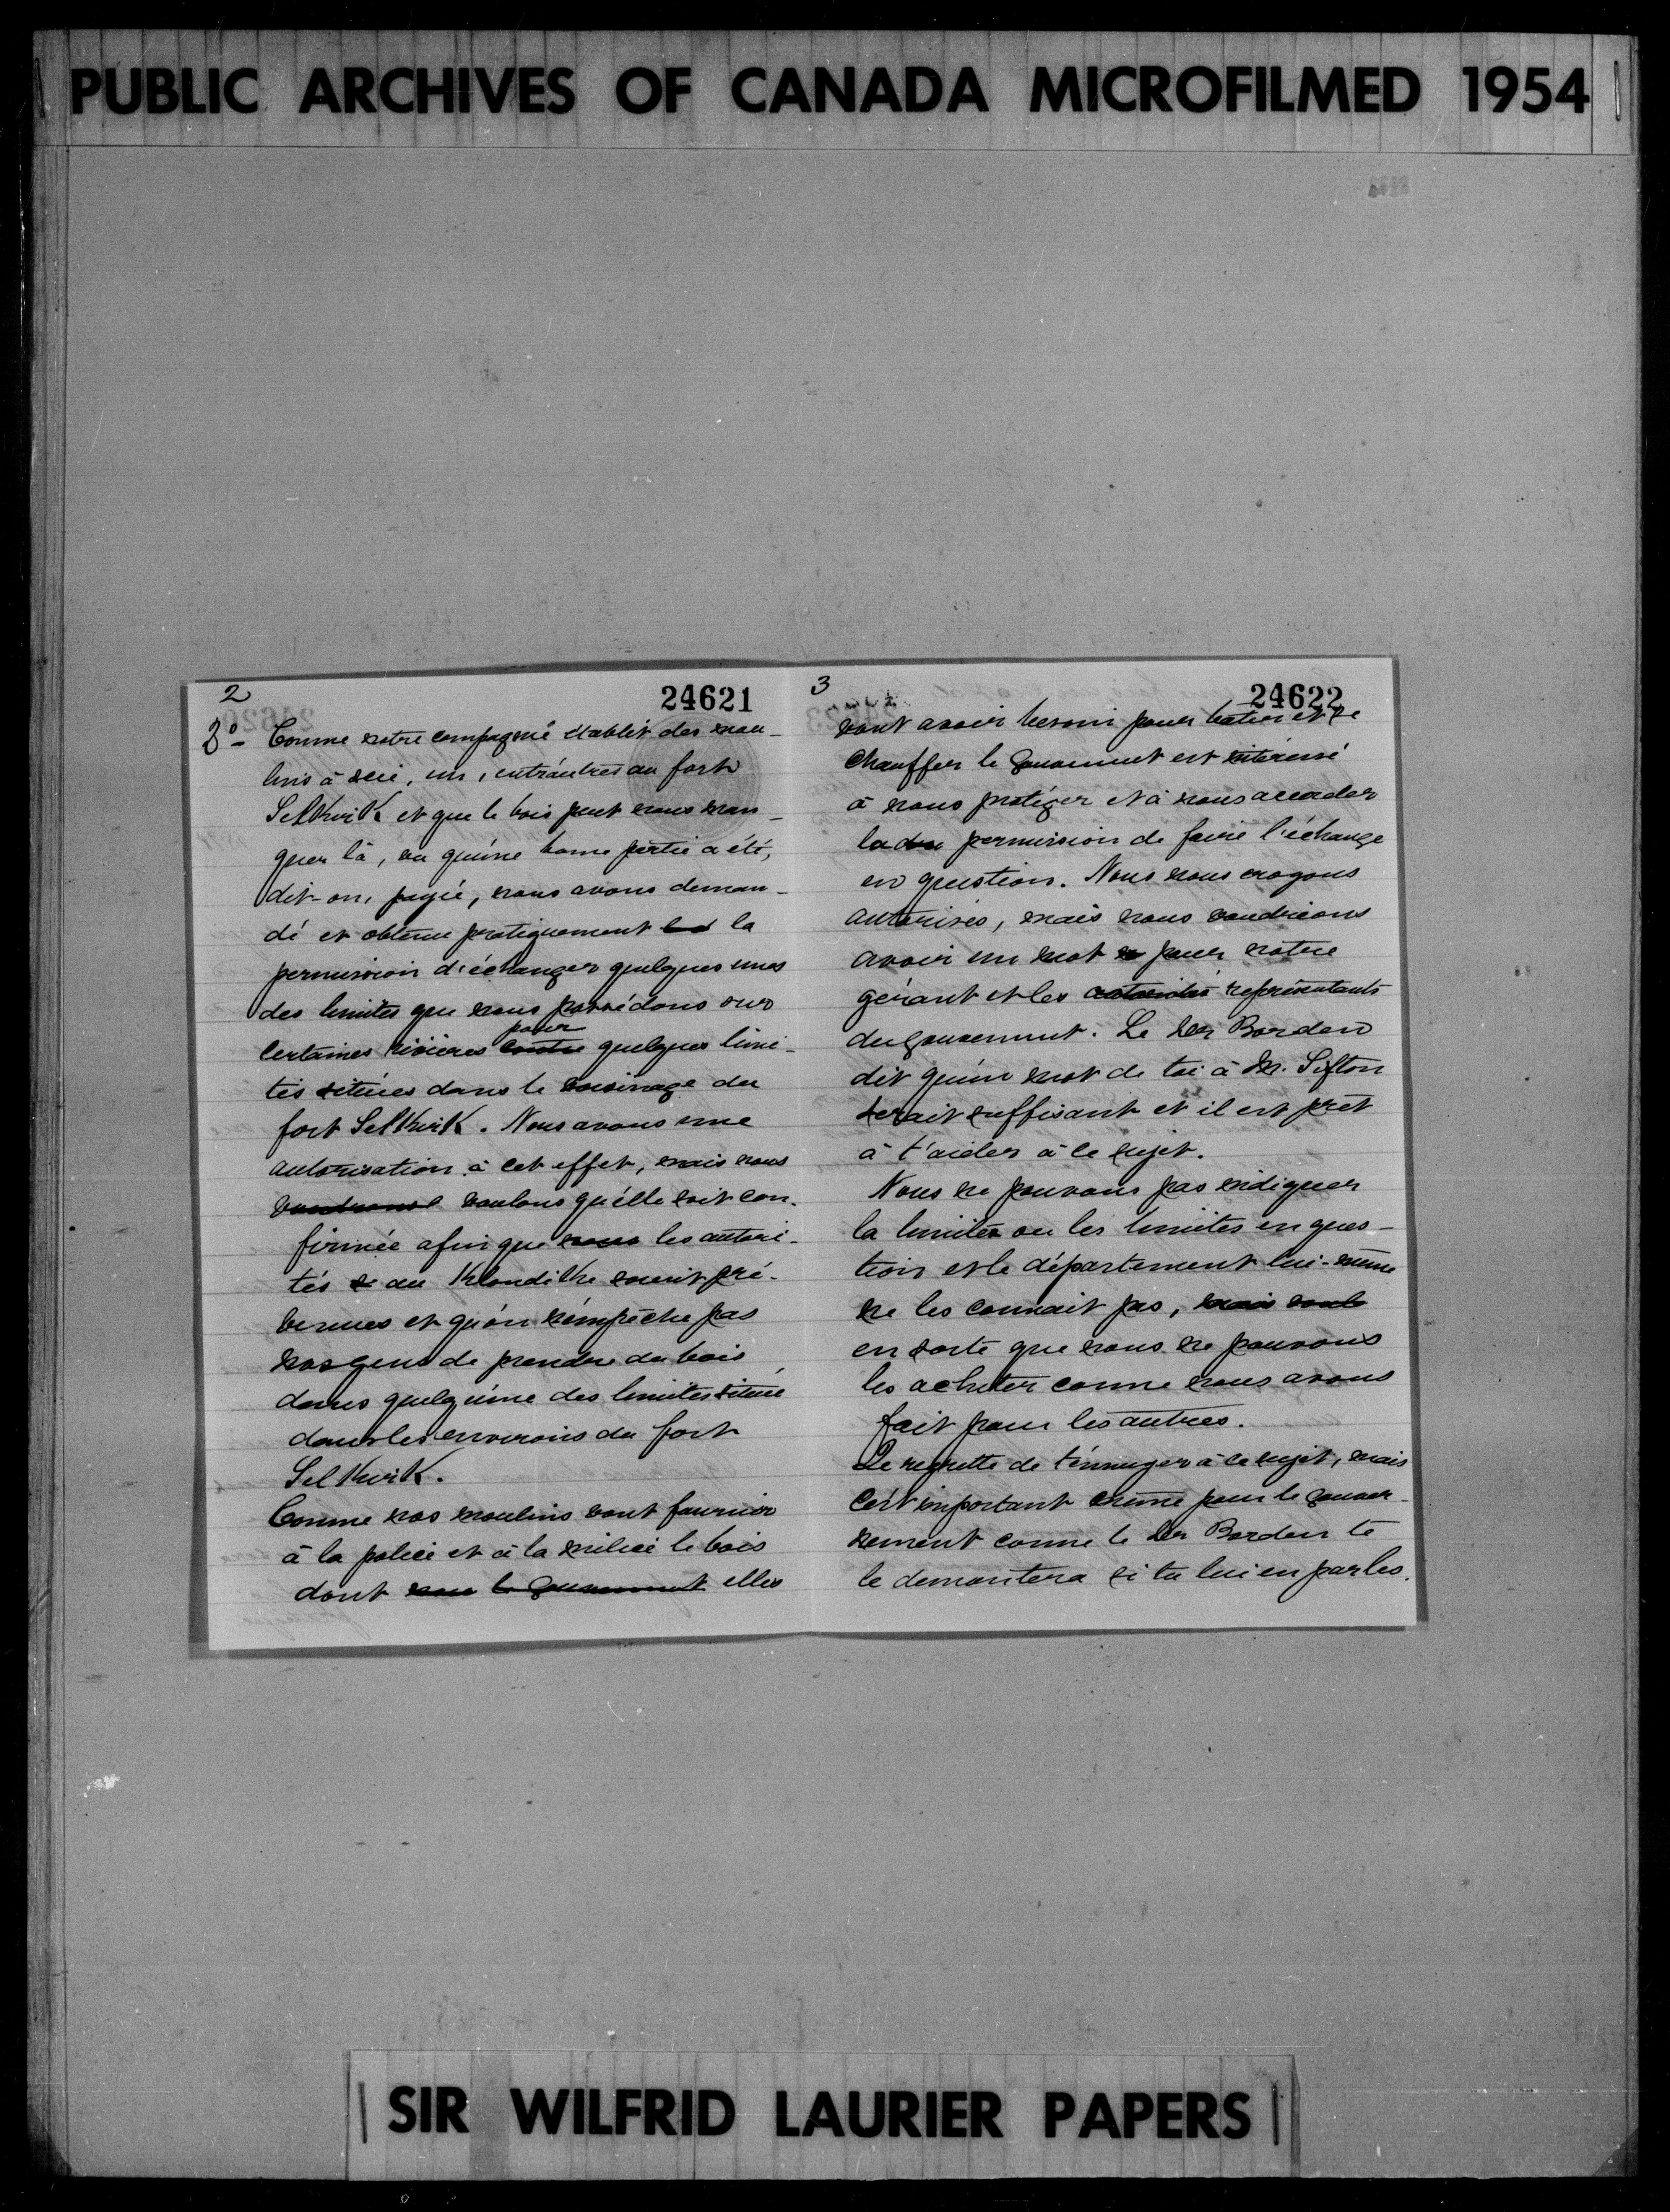 PUBLIC ARCHIVES OF CANADA MICROFILMED 1954
2
24621
3º- Comme notre compagnie établit des mou-
lins à scie, un, entr'autres au fort
Selkirk et que le bois peut nous man-
quer là, vu qu'une bonne partie a été,
dit-on, payée, nous avons deman-
dé et obtenu pratiquement la
permission d'échanger quelques unes
des limites que nous possédons sur
pour
certaines rivières contre quelques limi-
tes situées dans le voisinage du
fort Selkirk. Nous avons une
autorisation à cet effet, mais nous
voudrions voulons qu'elle soit con-
firmée afin que nous les autori-
tés au Klondike soient pré-
venues et qu'on n'empêche pas
nos gens de prendre du bois
dans quelqu'une des limites située
dans les environs du fort
Selkirk.
Comme nos moulins vont fournir
à la police et à la milice le bois
dont nous le gouvernement elles
3
24622
vont avoir besoin pour batir et se
chauffer le gouvernement est intéressé
à nous protéger et à nous accorder
la permission de faire l'échange
en question. Nous nous croyons
autorisés, mais nous voudrions
avoir un mot pour notre
gérant et les autorités représentants
du gouvernement. Le Dr Borden
dit qu'un mot de toi à M. Sifton
serait suffisant et il est prêt
à t'aider à ce sujet.
Nous ne pouvons pas indiquer
la limite ou les limites en ques-
tion et le département lui-même
ne les connait pas, mais
en sorte que nous ne pouvons
les acheter comme nous avons
fait pour les autres.
Je regrette de t'ennuyer à ce sujet, mais
c'est important même pour le gouver-
nement comme le Dr Borden te
le demontrera si tu lui en parles.
SIR WILFRID LAURIER PAPERS